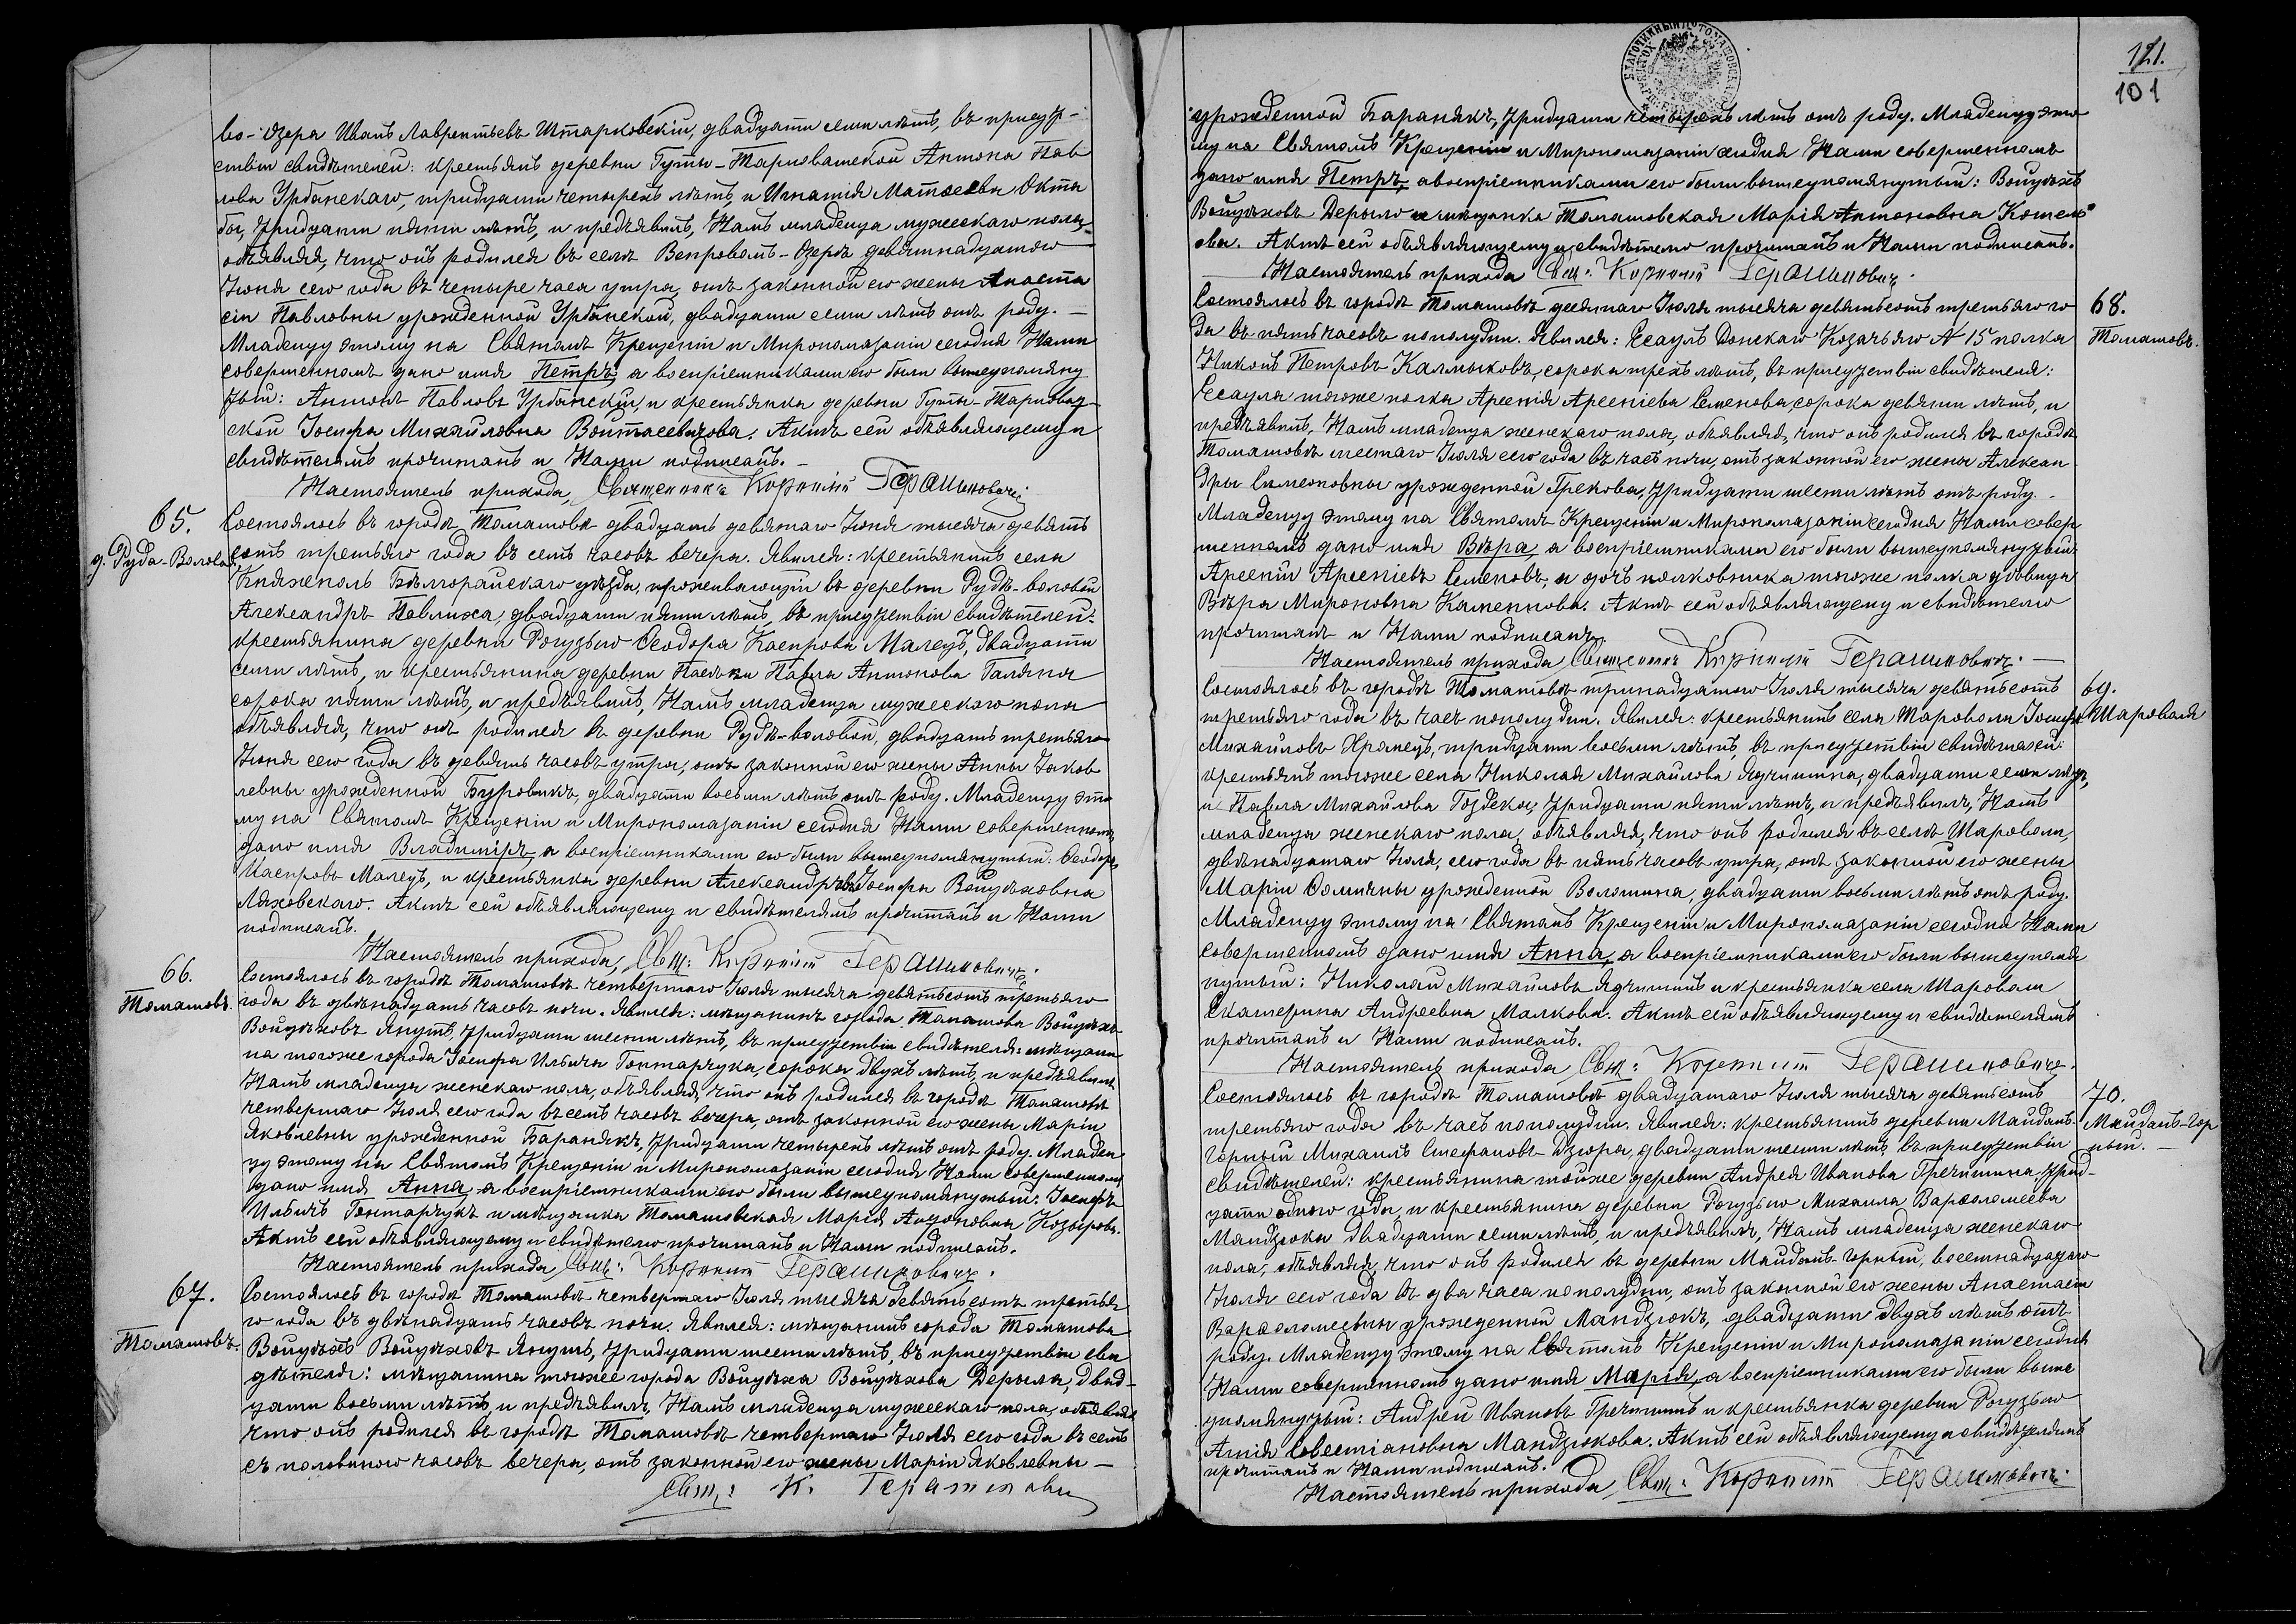 во-Озера Иванъ Лаврентьевъ Штарковскій, двадцати семи лѣтъ, въ присут-
ствіи свидѣтелей: крестьянъ деревни Гуты-Тарноватской Антона Пав
лова Урбанскаго, тридцати четырехъ лѣтъ, и Игнатія Матѳеева Окта
бы, тридцати пяти лѣтъ, и предъявилъ Намъ младенца мужескаго пола,
объявляя, что онъ родился въ селѣ Вепровомъ-Озерѣ девятнадцатого
Іюня сего года въ четыре часа утра, отъ законной его жены Анаста
сіи Павловны урожденной Урбанской, двадцати семи лѣтъ отъ роду. —
Младенцу этому на Святомъ Крещеніи и Миропомазаніи сегодня Нами
совершенномъ дано имя Петръ, а воспріемниками его были вышеупомяну
тый: Антонъ Павловъ Урбанскій, и крестьянка деревни Гуты-Тарноват-
ской Іосифа Михайловна Войтасевичова. Актъ сей объявляющему и
свидѣтелямъ прочитанъ и Нами подписанъ. —
Настоятель прихода, Священникъ Корнилій Герашиновичъ
65.
д. Рѹда-Волова
Состоялось въ городѣ Томашовѣ двадцать девятаго Іюня тысяча девять
сотъ третьяго года въ семь часовъ вечера. Явился: крестьянинъ села
Княжеполь Бѣлгорайскаго уѣзда, проживающій въ деревни Рудѣ-воловой
Александръ Павлиха, двадцати пяти лѣтъ, въ присутствіи свидѣтелей:
крестьянина деревни Рогузьно Ѳеодора Каспрова Малецъ, двадцати
семи лѣтъ, и крестьянина деревни Пасѣки Павла Антонова Галянта
сорока пяти лѣтъ, и предъявилъ Намъ младенца мужескаго пола
объявляя, что онъ родился въ деревни Рудѣ-воловой, двадцать третьяго
Іюня сего года въ девять часовъ утра, отъ законной его жены Анны Іаков
левны урожденной Буровикъ, двадцати восьми лѣтъ отъ роду. Младенцу это
му на Святомъ Крещеніи и Миропомазаніи сегодня Нами совершенномъ
дано имя Владиміръ, а воспріемниками его были вышеупомянутый: Ѳеодоръ
Каспровъ Малецъ, и крестьянка деревни Александровъ Іосифа Войцѣховна
Ляховскаго. Актъ сей объявляющему и свидѣтелямъ прочитанъ и Нами
подписанъ.
Настоятель прихода, Свщ: Корнилій Герашиновичъ.
66.
Томашовъ.
Состоялось въ городѣ Томашовѣ четвертаго Іюля тысяча девятьсотъ третьяго
года въ двѣнадцать часовъ ночи. Явился: мѣщанинъ города Томашова Войцѣхъ
Войцѣховъ Янушъ, тридцати шести лѣтъ, въ присутствіи свидѣтеля: мѣщани
на тогоже города Іосифа Ильича Гонтарчука, сорока двухъ лѣтъ, и предъявилъ
Намъ младенца женскаго пола, объявляя, что онъ родился въ городѣ Томашовѣ
четвертаго Іюля сего года въ семь часовъ вечера, отъ законной его жены Маріи
Яковлевны урожденной Баранякъ, тридцати четырехъ лѣтъ отъ роду. Младен
цу этому на Святомъ Крещеніи и Миропомазаніи сегодня Нами совершенномъ
дано имя Анна, а воспріемниками его были вышеупомянутый: Іосифъ
Ильичъ Гонтарчукъ и мѣщанка Томашовская Марія Антоновна Козырова.
Актъ сей объявляющему и свидѣтелю прочитанъ и Нами подписанъ.
Настоятель прихода Свщ: Корнилій Герашиновичъ.
67.
Томашовъ.
Состоялось въ городѣ Томашовѣ четвертаго Іюля тысяча девятьсотъ третья
го года въ двѣнадцать часовъ ночи. Явился: мѣщанинъ города Томашова
Войцѣхъ Войцѣховъ Янушъ, тридцати шести лѣтъ, въ присутствіи сви
дѣтеля: мѣщанина тогоже города Войцѣха Войцѣхова Дерыла, двад-
цати восьми лѣтъ, и предъявилъ Намъ младенца мужескаго пола, объявляя
что онъ родился въ городѣ Томашовѣ четвертаго Іюля сего года въ семь
съ половиною часовъ вечера, отъ законной его жены Маріи Яковлевны —
Свщ: К. Герашиновичъ
121.
101
урожденной Баранякъ, тридцати четырехъ лѣтъ отъ роду. Младенцу это
му на Святомъ Крещеніи и Миропомазаніи сегодня Нами совершенномъ
дано имя Петръ, а воспріемниками его были вышеупомянутый: Войцѣхъ
Войцѣховъ Дерыло и мѣщанка Томашовская Марія Антоновна Кошель
ова. Актъ сей объявляющему и свидѣтелю прочитанъ и Нами подписанъ.
Настоятель прихода Свщ: Корнилій Герашиновичъ.
68.
Томашовъ.
Состоялось въ городѣ Томашовѣ десятаго Іюля тысяча девятьсотъ третьяго го
да въ пять часовъ пополудни. Явился: Есаулъ Донскаго Козачьяго № 15 полка
Никонъ Петровъ Калмыковъ, сорока трехъ лѣтъ, въ присутствіи свидѣтеля:
Есаула тогоже полка Арсенія Арсеніева Семенова, сорока девяти лѣтъ, и
предъявилъ Намъ младенца женскаго пола, объявляя, что онъ родился въ городѣ
Томашовѣ шестаго Іюля сего года въ часъ ночи, отъ законной его жены Алексан
дры Симеоновны урожденной Грекова, тридцати шести лѣтъ отъ роду. —
Младенцу этому на Святомъ Крещеніи и Миропомазаніи сегодня Нами совер
шенномъ дано имя Вѣра, а воспріемниками его были вышеупомянутый
Арсеній Арсеніевъ Семеновъ, и дочь полковника тогоже полка дѣвица
Вѣра Мироновна Каменнова. Актъ сей объявляющему и свидѣтелю
прочитанъ и Нами подписанъ.
Настоятель прихода Священникъ Корнилій Герашиновичъ. —
69.
Шароволя
Состоялось въ городѣ Томашовѣ тринадцатого Іюля тысяча девятьсотъ
третьяго года въ часъ пополудни. Явился: крестьянинъ села Шароволи Іосифъ
Михайловъ Кромецъ, тридцати восьми лѣтъ, въ присутствіи свидѣтелей:
крестьянъ тогоже села Николая Михайлова Ядчишина, двадцати семи лѣтъ,
и Павла Михайлова Гоздека, тридцати пяти лѣтъ, и предъявилъ Намъ
младенца женскаго пола, объявляя, что онъ родился въ селѣ Шароволи,
двѣнадцатаго Іюля, сего года въ пять часовъ утра, отъ законной его жены
Маріи Ѳоминичны урожденной Волошина, двадцати восьми лѣтъ отъ роду.
Младенцу этому на Святомъ Крещеніи и Миропомазаніи сегодня Нами
совершенномъ дано имя Анна, а воспріемниками его были вышеупомя
нутый: Николай Михайловъ Ядчишинъ и крестьянка села Шароволи
Екатерина Андреевна Малкова. Актъ сей объявляющему и свидѣтелямъ
прочитанъ и Нами подписанъ.
Настоятель прихода Свщ: Корнилій Герашиновичъ.
70.
Майданъ-Гор
ный. —
Состоялось въ городѣ Томашовѣ двадцатаго Іюля тысяча девятьсотъ
третьяго года въ часъ пополудни. Явился: крестьянинъ деревни Майданъ-
Горный Михаилъ Стефановъ Дзюра, двадцати шести лѣтъ, въ присутствіи
свидѣтелей: крестьянина тойже деревни Андрея Иванова Гречишина, трид-
цати одного года, и крестьянина деревни Рогузьно Михаила Варѳоломеева
Мандзюка двадцати семи лѣтъ, и предъявилъ Намъ младенца женскаго
пола, объявляя, что онъ родился въ деревни Майданъ-Горный, восемнадцатаго
Іюля сего года въ два часа пополудни, отъ законной его жены Анастасіи
Варѳоломеевны урожденной Мандзюкъ, двадцати двухъ лѣтъ отъ
роду. Младенцу этому на Святомъ Крещеніи и Миропомазаніи сегодня
Нами совершенномъ дано имя Марія, а воспріемниками его были выше
упомянутый: Андрей Ивановъ Гречишинъ и крестьянка деревни Рогузьно
Агнія Севастіановна Мандзюкова. Актъ сей объявляющему и свидѣтелямъ
прочитанъ и Нами подписанъ.
Настоятель прихода, Свщ. Корнилій Герашиновичъ.